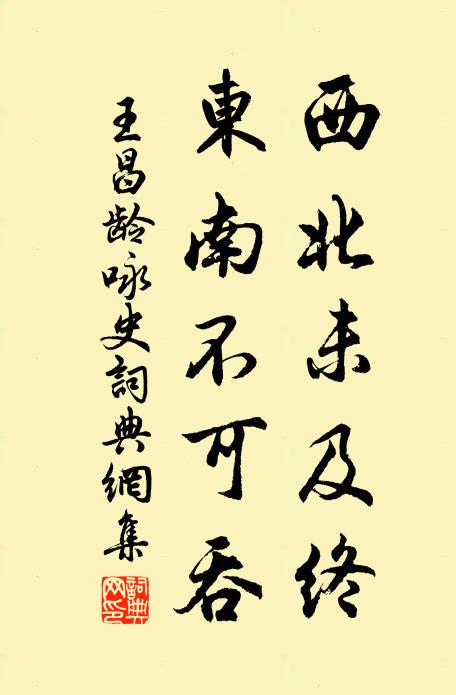 西北未及终
東南不可吞
王昌龄咏史詞典網集
詞典網印